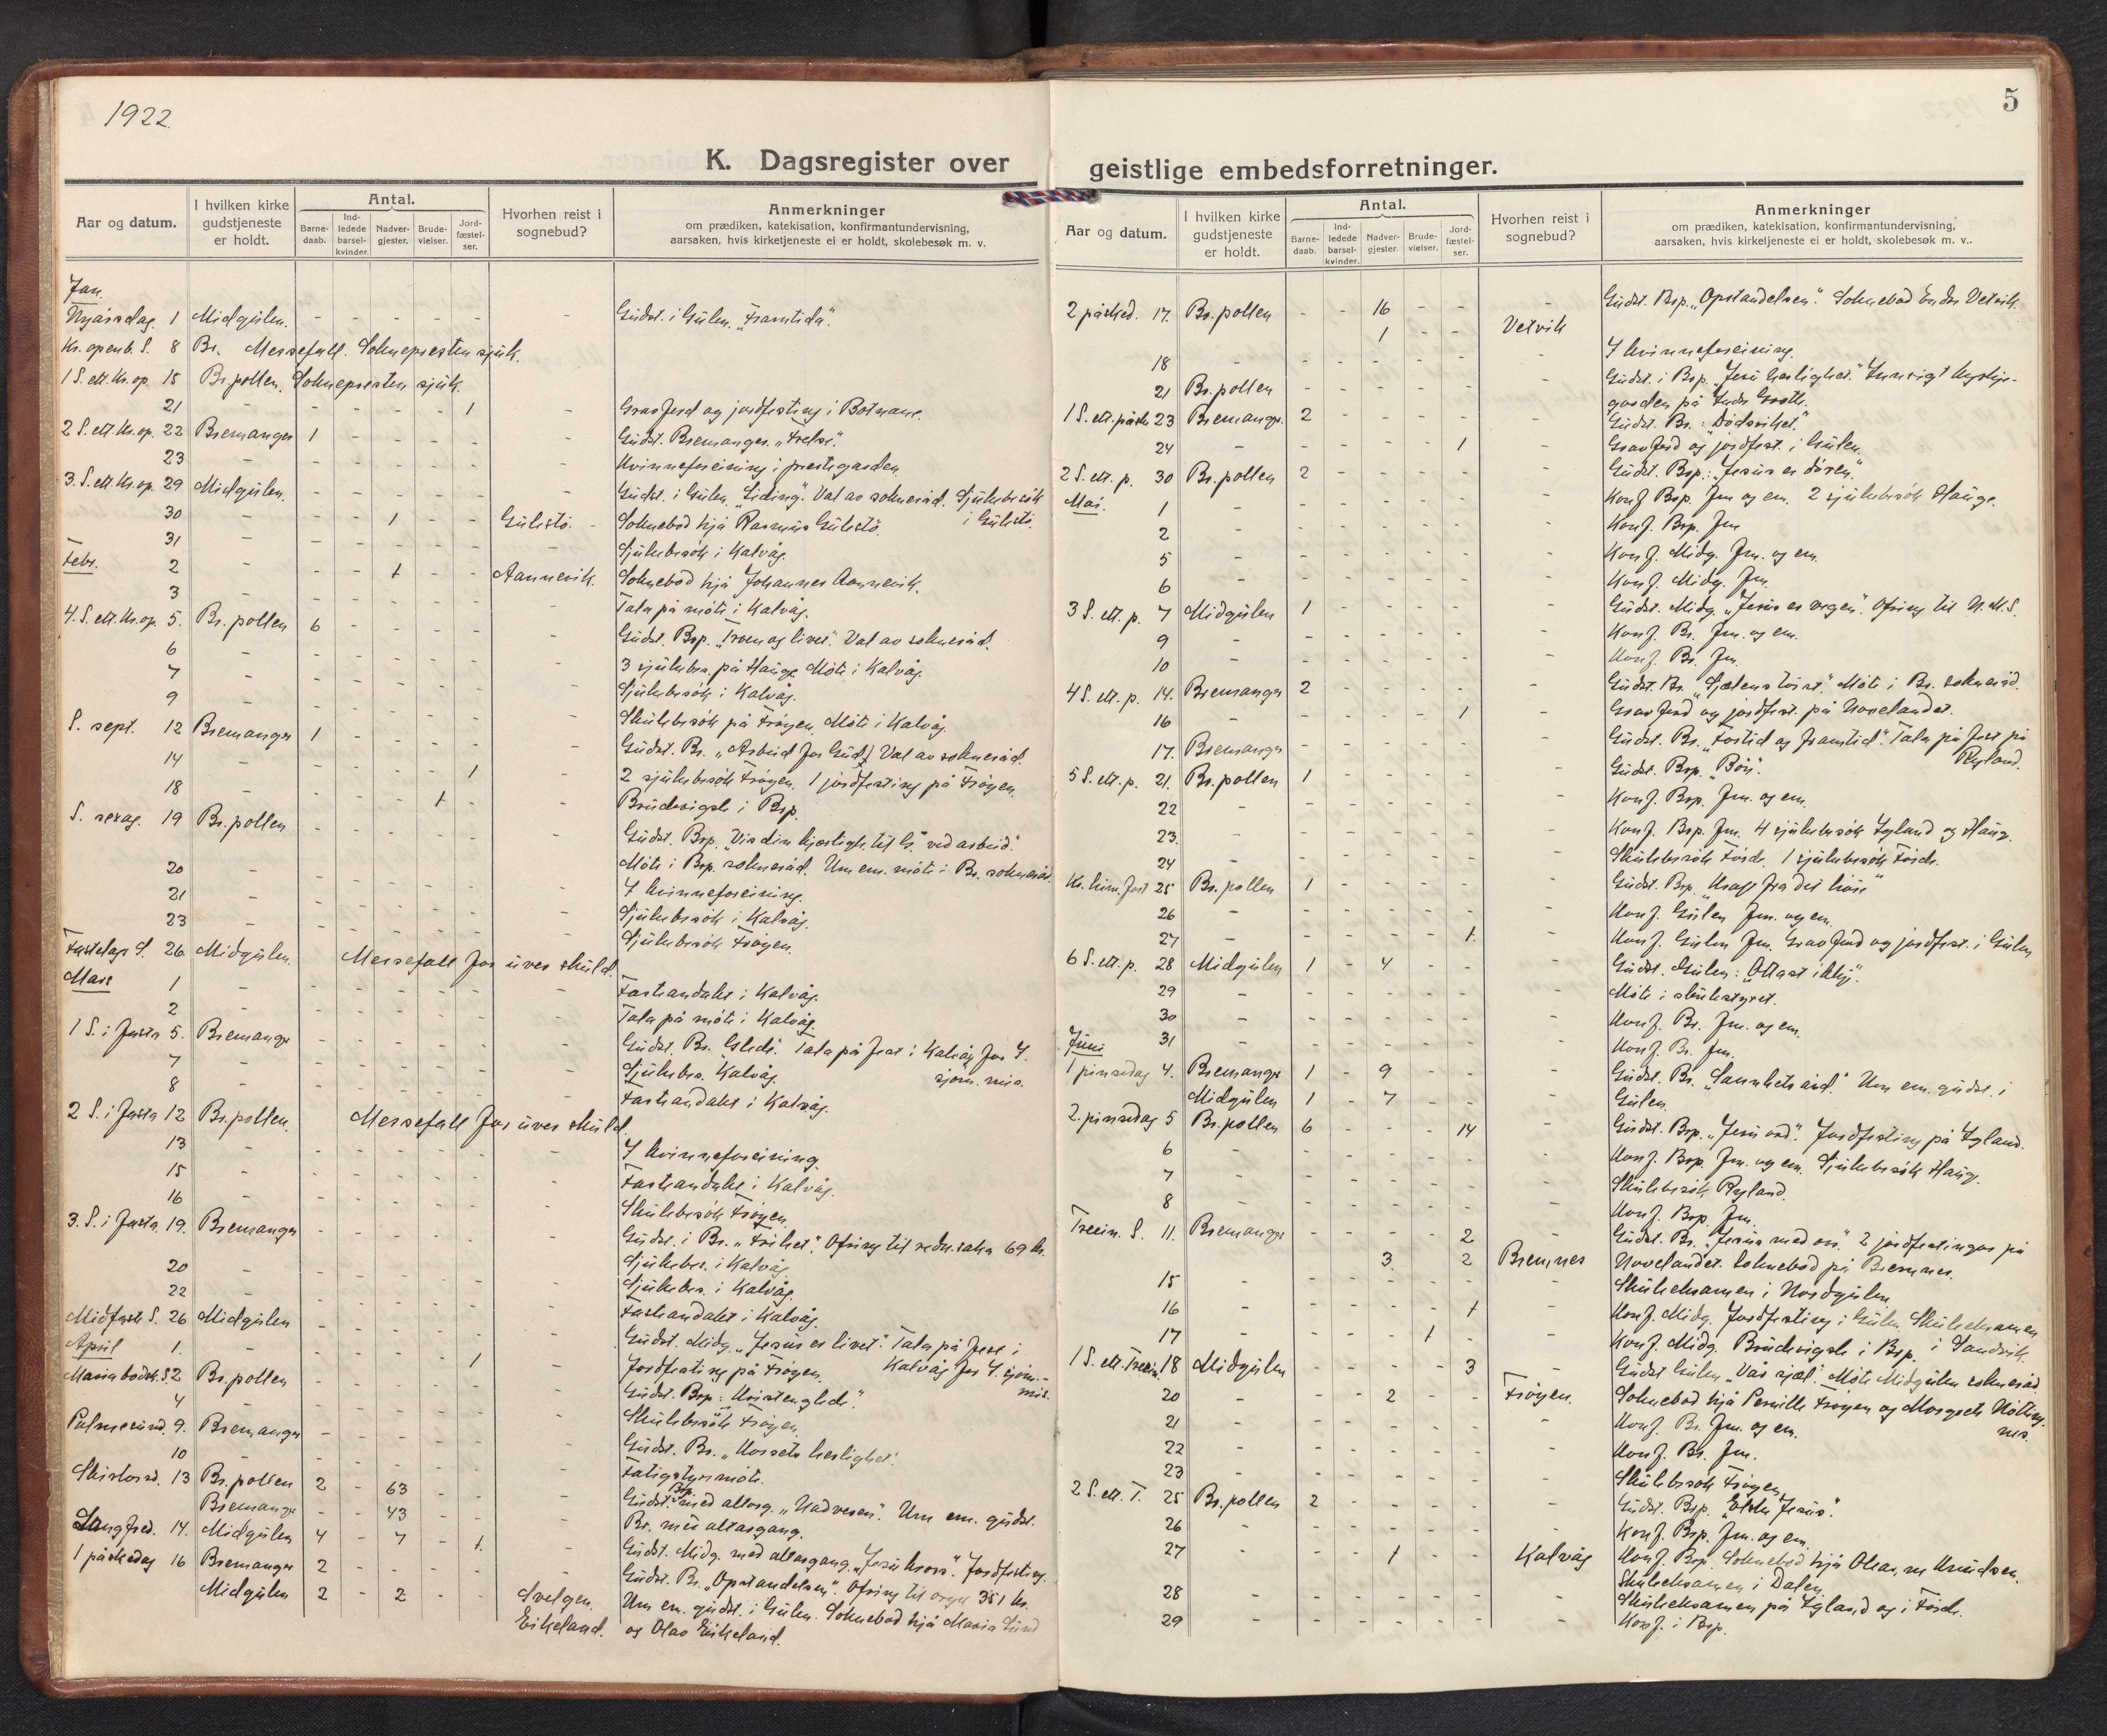 1922.
K. Dagsregister over
Aar og datum.
I hvilken kirke gudstjeneste er holdt.
Antal.
Barnedaab.
Indledede barselkvinder.
Nadvergjester.
Brudevielser.
Jordfæstelser.
Hvorhen reist i sognebud?
Anmerkninger
om prædiken, katekisation, konfirmantundervisning,
aarsaken, hvis kirketjeneste ei er holdt, skolebesøk m. v.
Jan.
Nyårsdag. 1 Midgulen. - - - - - - Gudst. i Gulen. "Framtida".
Kr. openb. S. 8 Br. Messefall. Soknepresten sjuk.
1 S. ett. Kr. op. 15 Br.pollen. Soknepresten sjuk.
21 - - - - - 1 - Gravferd og jordfesting i Botnane.
2 S. ett. Kr. op. 22 Bremanger 1 - - - - - Gudst. Bremanger. "Frelse".
23 - - - - - - - Kvinneforeining i prestegarden.
3. S. ett. Kr. op. 29 Midgulen. - - - - - - Gudst. i Gulen. "Liding". Val av sokneråd. Sjukebesök
i Gulestö.
30 - - - 1 - - Gulestö. Soknebod hjå Rasmus Gulestö.
31 - - - - - - - Sjukebesök i Kalvåg.
Febr. 2 - - - 1 - - Aannevik. Soknebod hjå Johannes Aannevik.
3 - - - - - - - Tala på möte i Kalvåg.
4. S. ett. Kr. op. 5. Br.pollen 6 - - - - - Gudst. Brp. "Truen og livet". Val av sokneråd.
6 - - - - - - - 3 sjukebes. på Hauge. Möte i Kalvåg.
7 - - - - - - - Sjukebesök i Kalvåg.
9 - - - - - - - Skulebesök på Fröyen. Möte i Kalvåg.
S. sept. 12 Bremanger 1 - - - - - Gudst. Br. "Arbeid for Gud". Val av sokneråd.
14 - - - - - 1 - 2 sjukebesök Fröyen. 1 jordfesting på Fröyen.
18 - - - - 1 - - Brudevigsle i Brp.
S. sexag. 19 Br.pollen - - - - - - Gudst. Brp. "Vis din kjærligh. til G. ved arbeid."
Möte i Brp. sokneråd. Um em. möte i Br. sokneråd.
20 - - - - - - - I kvinneforeining.
21 - - - - - - - Sjukebesök i Kalvåg.
23 - - - - - - - Sjukebesök Fröyen.
Fastelags S. 26. Midgulen. Messefall for uver skuld.
Mars 1 - - - - - - - Fasteandakt i Kalvåg.
2 - - - - - - - Tala på möte i Kalvåg.
1 S. i fasta 5. Bremanger - - - - - - Gudst. Br. "Glede". Tala på fest i Kalvåg for I.
sjöm. mis.
7 - - - - - - - Sjukebes. Kalvåg.
8 - - - - - - - Fasteandakt i Kalvåg.
2 S. i fasta 12 Br.pollen. Messefall for uver skuld.
13 - - - - - - - I kvinneforeining.
15 - - - - - - - Fasteandakt i Kalvåg.
16 - - - - - - - Skulebesök Fröyen.
3. S. i fasta. 19. Bremanger - - - - - - Gudst. i Br. "Frihet". Ofring til 69 kr.
Sjukebes. i Kalvåg
20 - - - - - - - Sjukebes. i Kalvåg.
22 - - - - - - - Fasteandakt i Kalvåg.
Midfaste S. 26 Midgulen - - - - - - Gudst. Midg. "Jesus er livet." Tala på fest i
Kalvåg for I. sjöm.-mis.
April 1. - - - - - 1 - Jordfesting på Fröyen.
Maria bodsk. S. 2 Br.pollen - - - - - - Gudst. Brp: "Kristenglede".
4 - - - - - - - Skulebesök Fröyen.
Palmesund. 9. Bremanger - - - - - - Gudst. Br. "Korsets herlighet".
10 - - - - - - - Fatigstyremöte.
Skirtorsd. 13 Br.pollen 2 - 63 - - - Gudst. Brp. med altarg. "Nadveren". Um em. gudst.
Bremanger - - 43 - - - Br. med altargang.
Langfred. 14. Midgulen 4 - 7 - 1. - Gudst. Midg. med altargang. "Jesu kross". Jordfesting.
1 påskedag 16 Bremanger 2 - - - - - Gudst. Br. "Opstandelsen". Ofring til orgel 351 kr.
Midgulen 2 - 2 - - Svelgen. Um em. gudst. i Gulen. Soknebod hjå Maria Lund
Eikeland. og Olav Eikeland.
5
geistlige embedsforretninger.
Aar og datum.
I hvilken kirke gudstjeneste er holdt.
Antal.
Barnedaab.
Indledede barselkvinder.
Nadvergjester
Brudevielser.
Jordfæstelser.
Hvorhen reist i sognebud?
Anmerkninger
om prædiken, katekisation, konfirmantundervisning,
aarsaken, hvis kirketjeneste ei er holdt, skolebesøk m. v..
2 påsked. 17. Br.pollen - - 16 - - - Gudst. Brp. "Opstandelsen". Soknebod Vetvik.
1 - - Vetvik
18 - - - - - - - I kvinneforeining.
21 Br.pollen - - - - - - Gudst. i Brp. "Jesu herlighet."
1 S. ett. påske 23 Bremanger. 2 - - - - - Gudst. Br.: "Dödsriket".
24 - - - - - 1 - Gravferd og jordfest. i Gulen.
2 S. ett. p. 30 Br.pollen 2 - - - - - Gudst. Brp.: "Jesus er dören".
Mai. 1 - - - - - - - Konf. Brp. Fm og em. 2 sjukebesök Hauge.
2 - - - - - - - Konf. Brp. Fm
5 - - - - - - - Konf. Midg. Fm. og em.
6 - - - - - - - Konf. Midg. Fm.
3 S. ett. p. 7 Midgulen 1 - - - - - Gudst. Midg. "Jesus er vegen". Ofring til N.M.S.
9 - - - - - - - Konf. Br. Fm. og em.
10 - - - - - - - Konf. Br. Fm.
4 S. ett. p. 14. Bremanger 2 - - - - - Gudst. Br. "Sjælens töist". Möte i Br. sokneråd.
16 - - - - - 1 - Gravferd og jordfest. på Novelandet.
17. Bremanger - - - - - - Gudst. Br. "Fortid og framtid". Tala på fest på
Ryland.
5 S. ett. p. 21. Br.pollen 1 - - - - - Gudst. Brp. "Bön".
22 - - - - - - - Konf. Brp. Fm. og em.
23. - - - - - - - Konf. Brp. Fm. 4 sjukebesök Igland og Haug.
24 - - - - - - - Skulebesök Förde. 1 sjukebesök Förde.
Kr. him. fest 25 Br.pollen 1 - - - - - Gudst. Brp. "Kraft fra det höie"
26 - - - - - - - Konf. Gulen Fm. og em.
27 - - - - - 1. - Konf. Gulen Fm. Gravferd og jordfest. i Gulen
6 S. ett. p. 28 Midgulen 1 - 4 - - - Gudst. Gulen: "Ottast ikkj".
29 - - - - - - - Möte i skulestyret.
30 - - - - - - - Konf. Br. Fm. og em.
31 - - - - - - - Konf. Br. Fm.
Juni
1 pinsedag 4. Bremanger 1 - 9 - - - Gudst. Br. "Sannhets ånd". Um em. gudst. i
Midgulen 1 - 7 - - Gulen.
2. pinsedag 5 Br.pollen 6 - - - 14 - Gudst. Brp. "Jesu ord". Jordfesting på Igland.
6 - - - - - - - Konf. Brp. Fm. og em. Sjukebesök Haug.
7 - - - - - - - Skulebesök Ryland.
8 - - - - - - - Konf. Brp Fm.
Treein. S. 11. Bremanger - - - - 2 - Gudst. Br. "Jesus med oss". 2 jordfestingar på
3. - 2 Bremnes Novelandet. Soknebod på Bremnes.
15 - - - - - - - Skuleeksamen i Nordgulen
16 - - - - - 1 - Konf. Midg. Jordfesting i Gulen. Skuleeksamen
i Sandvik.
17 - - - - 1 - - Konf. Midg. Brudevigsle i Brp.
1 S. ett. Treein. 18 Midgulen - - - - 3 - Gudst Gulen "Vår sjæl". Möte Midgulen sokneråd.
20 - - - 2 - - Fröyen. Soknebod hjå Pernille Fröyen og Margrete
21 - - - - - - - Konf. Br. Fm. og em.
22 - - - - - - - Konf. Br. Fm.
23 - - - - - - - Skulebesök Fröyen.
2 S. ett. T. 25 Br.pollen 2 - - - - - Gudst. Brp. "Elske Jesus".
26 - - - - - - - Konf. Brp. Fm. og em.
27 - - - 1 - - Kalvåg Konf. Brp. Soknebod hjå Knudsen.
Skuleeksamen i Dalen.
28 - - - - - - - Skuleeksamen på Igland og i Förde.
29 - - - - - - - Konf. i Brp.